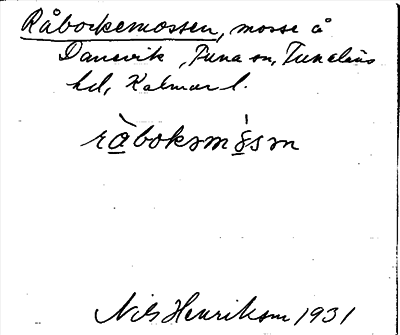 Råbockemossen, mosse å
Dansvik, Tuna sn, Tunaläns
hd, Kalmar l.
rå̀boksmo̠̍sn
Nils Henrikson 1931